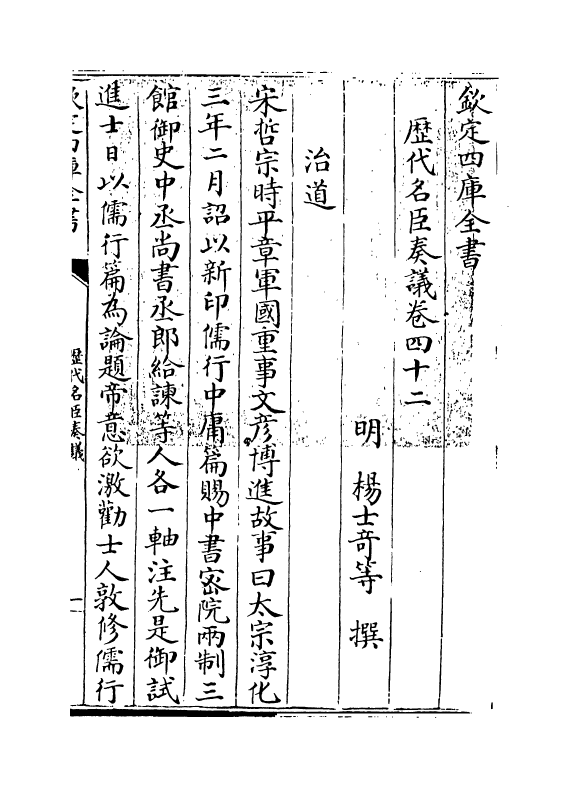 欽定四庫全書
歷代名臣奏議卷四十二
明　楊士奇等　撰
治道
宋哲宗時平章軍國重事文彦博進故事曰太宗淳化
三年二月詔以新印儒行中庸篇賜中書密院兩制三
館御史中丞尚書丞郎給諫等人各一軸注先是御試
進士日以儒行篇為論題帝意欲激勸士人敦修儒行
歷代名臣奏議
一